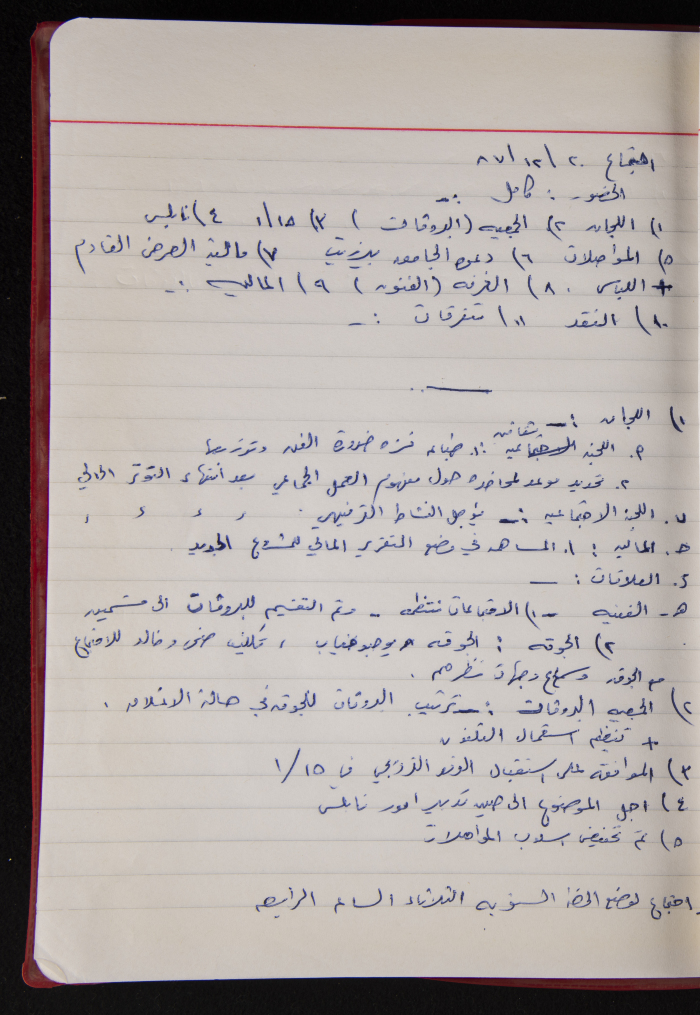 اجتماع ٢٠/١٢/٨٧
الحضور : كامل :ـ
١) اللجان ٢) الجمعيه (البروڤات) ٣) ١/١٥ ٤) نابلس
٥) المواصلات ٦) دعوه الجامعه بيرزيت ٧) مالية العرض القادم
+ اللباس . ٨) الغرفه (الفنون) ٩) الماليه :ـ
١٠) النقد ١١) متفرقات :ـ
١) اللجان :ـ
٢. اللجنة الثقافيه :١. طباعه ضرورة الفن وتوزيعها
٢. تحديد موعد لمحاضره حول مفهوم العمل الجماعي بعد انتهاء التوتر الحالي
ب. اللجنة الاجتماعيه :ـ يؤجل النشاط الترفيهي . ء ء ء ء
ج. الماليه : ١. المساهمه في وضع التقرير المالي للمشروع الجديد .
د. العلاقات : ــ
هـ ـ الفنيه ـ ١) الاجتماعات منتظمه ـ وتم التقسيم للبروڤات الى قسمين
٢) الجوقه : الجوقه يوجد غياب ، تكليف وخالد للاجتماع
مع الجوقه وسماع وجهات نظرهم .
٢) الجمعيه البروڤات :ـ ترتيب البروڤات للجوقه في حالة الاغلاق .
+ تنظيم استعمال التلفون
٣) الموافقه على استقبال الوفد النرويجي في ١/١٥
٤) اجل الموضوع الى حين تدبير امور نابلس
٥) تم تخفيض المواصلات
اجتماع لوضع الخطة السنويه الثلاثاء الساعه الرابعه